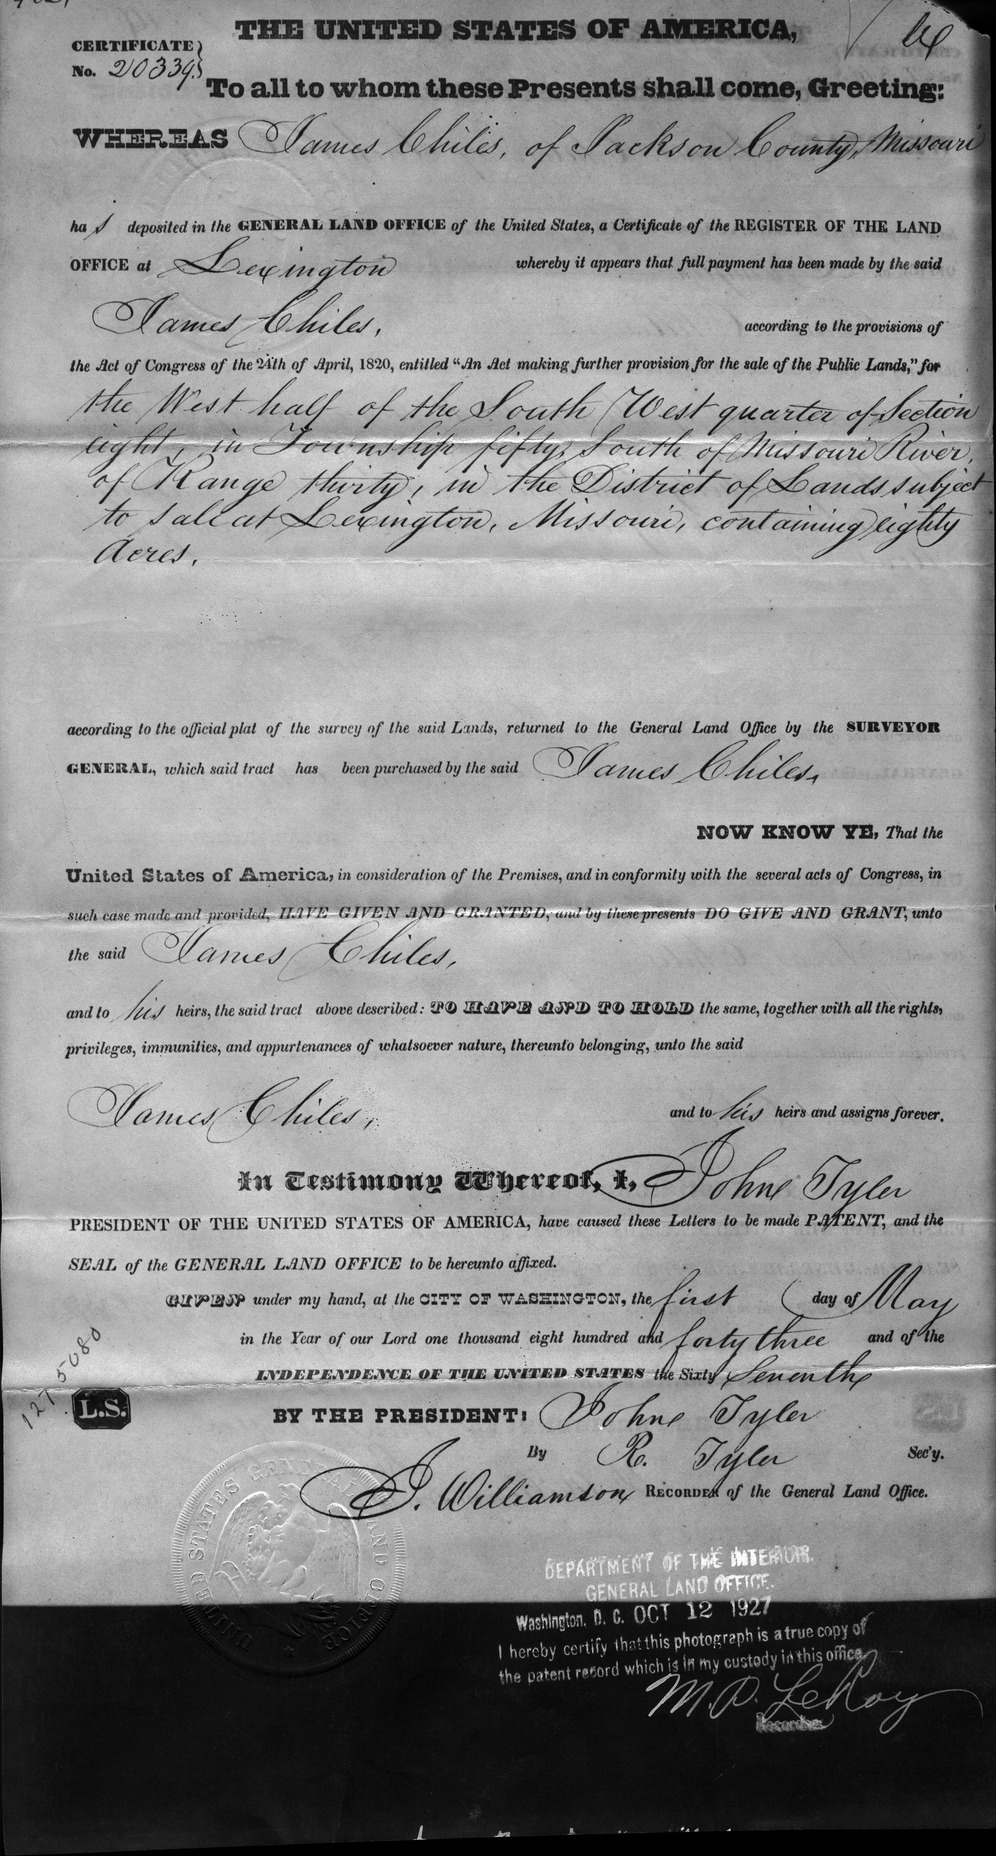 THE UNITED STATES OF AMERICA,
CERTIFICATE
No. 20339
To all to whom these Presents shall come, Greeting:
WHEREAS James Chiles, of Jackson County, Missouri
has deposited in the GENERAL LAND OFFICE of the United States, a Certificate of the REGISTER OF THE LAND
OFFICE at Lexington whereby it appears that full payment has been made by the said
James Chiles, according to the provisions of
the Act of Congress of the 24th of April, 1820, entitled "An Act making further provision for the sale of the Public Lands," for
the West half of the South West quarter of Section
eight, in Township fifty, South of Missouri River,
of Range thirty, in the District of Lands subject
to sale at Lexington, Missouri, containing eighty
Acres.
according to the official plat of the survey of the said Lands, returned to the General Land Office by the SURVEYOR
GENERAL, which said tract has been purchased by the said James Chiles,
NOW KNOW YE, That the
United States of America, in consideration of the Premises, and in conformity with the several acts of Congress, in
such case made and provided, HAVE GIVEN AND GRANTED, and by these presents DO GIVE AND GRANT, unto
the said James Chiles,
and to his heirs, the said tract above described: TO HAVE AND TO HOLD the same, together with all the rights,
privileges, immunities, and appurtenances of whatsoever nature, thereunto belonging, unto the said
James Chiles, and to his heirs and assigns forever.
In Testimony Whereof, I, John Tyler
PRESIDENT OF THE UNITED STATES OF AMERICA, have caused these Letters to be made PATENT, and the
SEAL of the GENERAL LAND OFFICE to be hereunto affixed.
GIVEN under my hand, at the CITY OF WASHINGTON, the first day of May
in the Year of our Lord one thousand eight hundred and forty three and of the
INDEPENDENCE OF THE UNITED STATES the Sixty Seventh
1275080
L.S.
BY THE PRESIDENT: John Tyler
By R. Tyler Sec'y.
J. Williamson RECORDER of the General Land Office.
UNITED STATES GENERAL LAND OFFICE
DEPARTMENT OF THE INTERIOR.
GENERAL LAND OFFICE.
Washington, D. C. OCT 12 1927
I hereby certify that this photograph is a true copy of
the patent record which is in my custody in this office.
M. P. LeRoy
Recorder